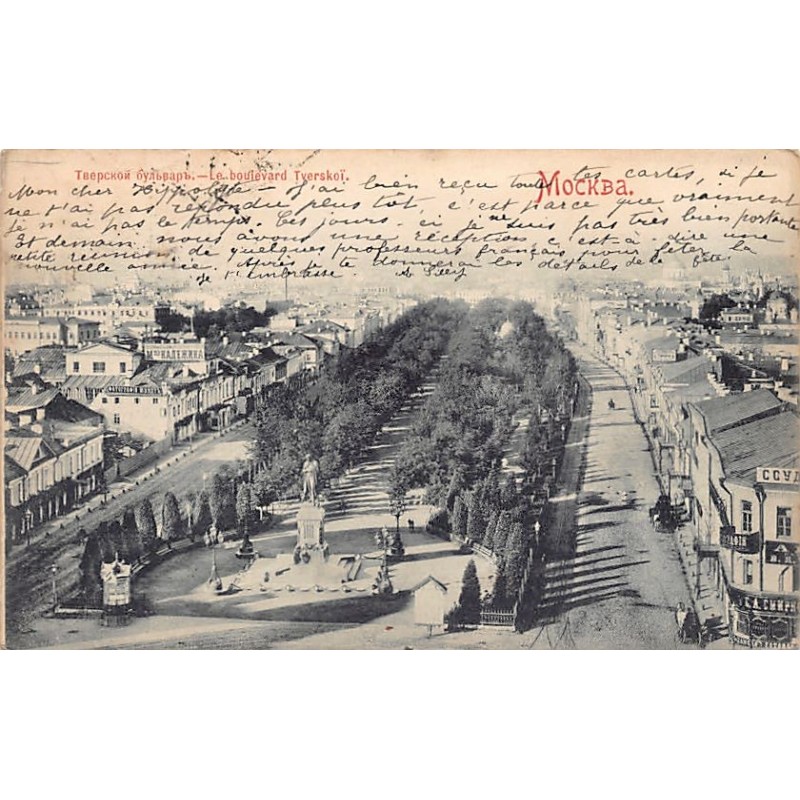 Тверской бульваръ. — Le boulevard Tverskoï.
Москва.
Mon cher Hippolyte - J'ai bien reçu toutes tes cartes, si je
ne t'ai pas répondu plus tôt c'est parce que vraiment
je n'ai pas le temps. Ces jours-ci je ne suis pas très bien portante
Et demain nous avons une réception c'est à dire une
petite réunion de quelques professeurs français pour fêter la
nouvelle année. Après je te donnerai les détails de la fête
je t'embrasse
КАЛЕНИКА
ФОТОГРАФІЯ
ССУД